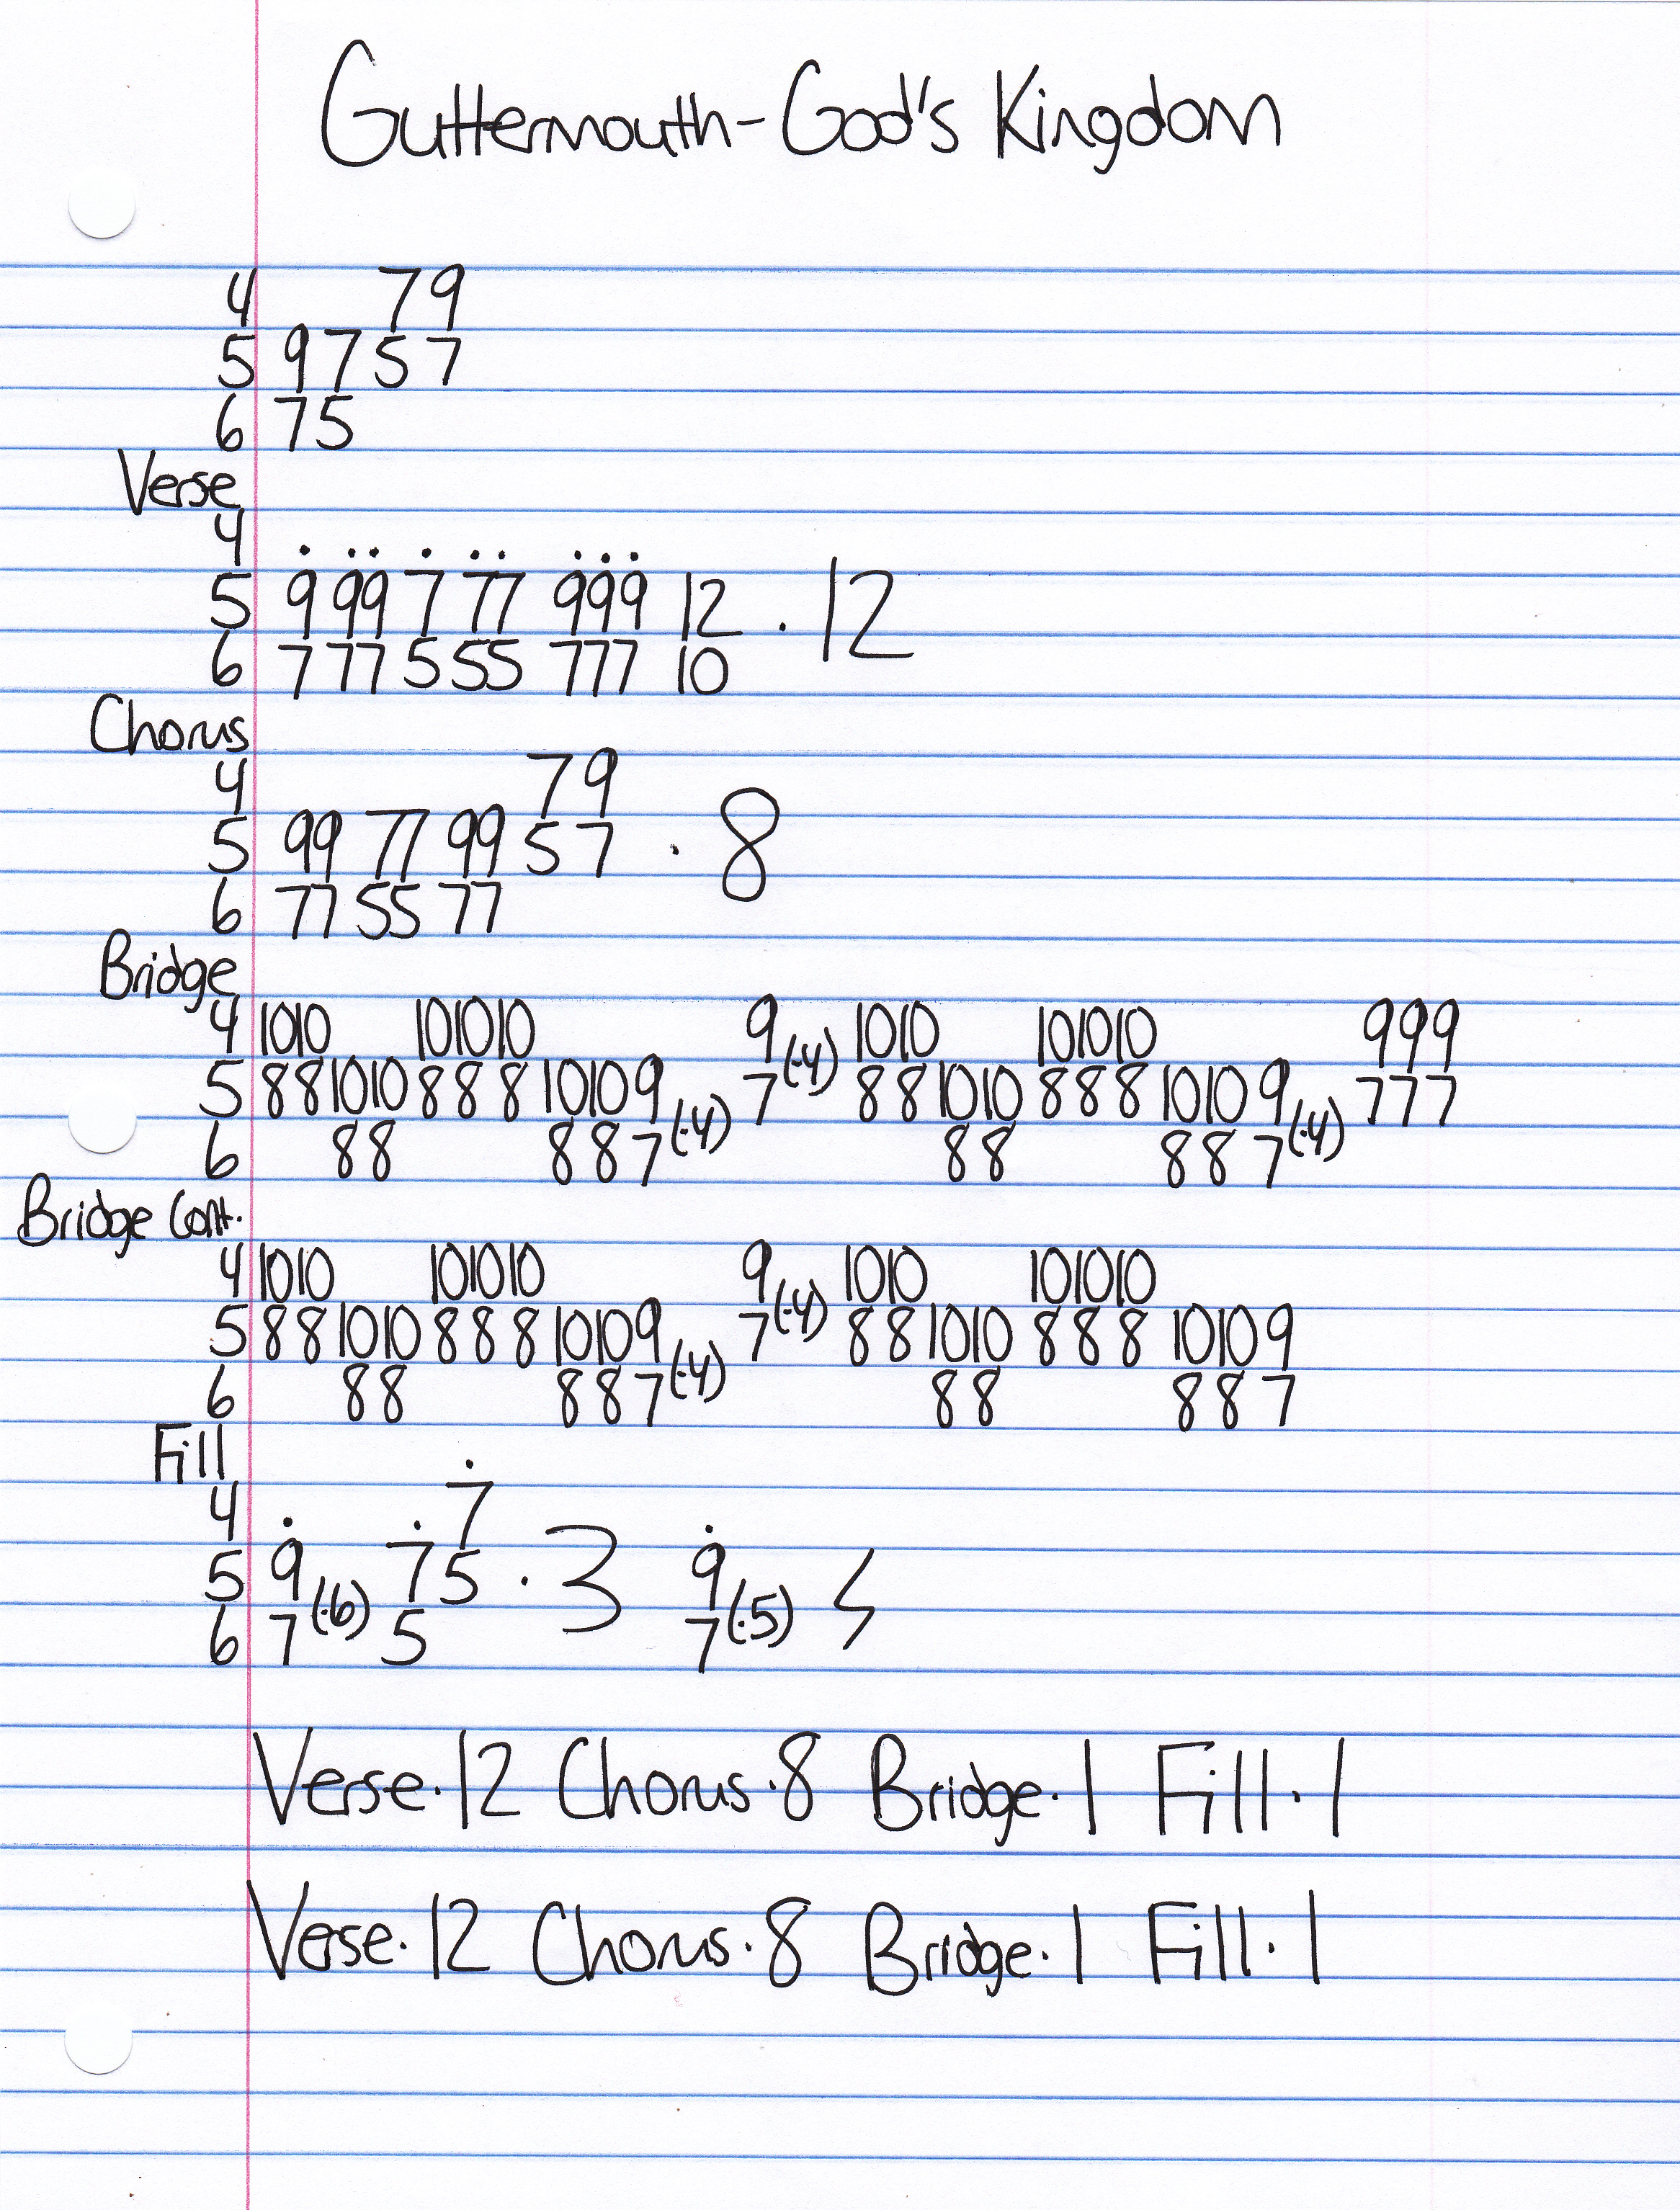 Guttermouth-God's Kingdom
4 7 9
5 9 7 5 7
6 7 5
Verse
4 . . . . . . . . .
5 9 9 9 7 7 7 9 9 9 12 · 12
6 7 7 7 5 5 5 7 7 7 10
Chorus
4 7 9
5 99 77 99 5 7 · 8
6 77 55 77
Bridge
4 10 10 10 10 10 9 (·4) 10 10 10 10 10 9 9 9
5 8 8 10 10 8 8 8 10 10 9 (·4) 7 8 8 10 10 8 8 8 10 10 9 (·4) 7 7 7
6 8 8 8 8 7 8 8 8 8 7
Bridge Cont.
4 10 10 10 10 10 9 (·4) 10 10 10 10 10
5 8 8 10 10 8 8 8 10 10 9 (·4) 7 8 8 10 10 8 8 8 10 10 9
6 8 8 8 8 7 8 8 8 8 7
Fill
4 . . 7
5 9 (·6) 7 5 · 3 9 (·5)
6 7 5 7
Verse·12 Chorus·8 Bridge·1 Fill·1
Verse·12 Chorus·8 Bridge·1 Fill·1